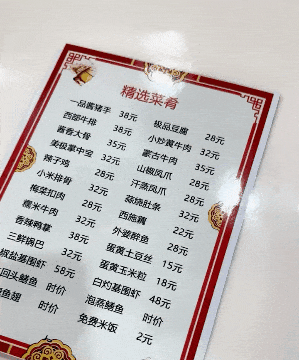 精选菜肴
一品酱猪手 38元
西部牛排 38元
酱香大骨 35元
美极掌中宝 32元
辣子鸡 28元
小米排骨 32元
梅菜扣肉 28元
糯米牛肉 32元
香辣鸭掌 38元
三鲜锅巴 32元
椒盐基围虾 58元
回头鳝鱼 时价
鱼甜 时价
极品豆腐 28元
小炒黄牛肉 32元
蒙古牛肉 35元
山椒凤爪 28元
汗蒸凤爪 28元
葱烧肚条 32元
西施藕 22元
外婆醉鱼 28元
蛋黄土豆丝 15元
蛋黄玉米粒 18元
白灼基围虾 48元
泡蒸鳝鱼 时价
免费米饭 2元